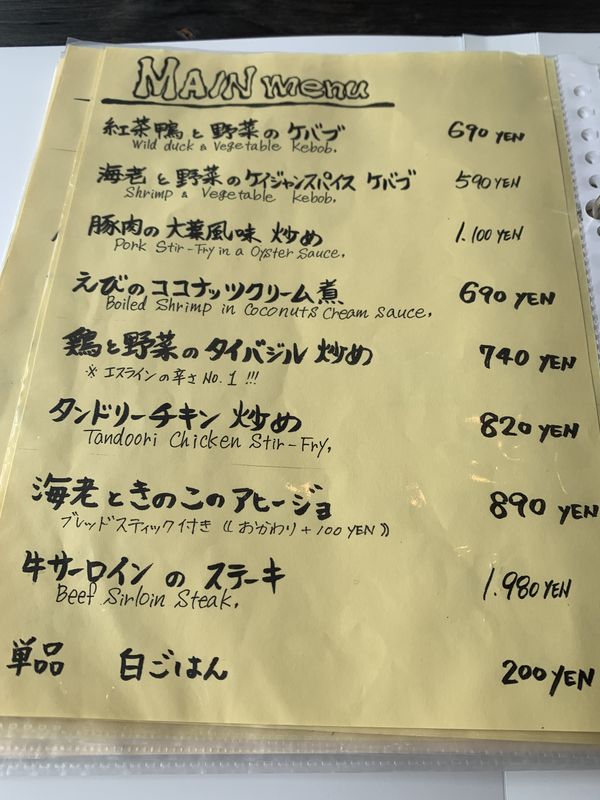 MAIN menu
紅茶鴨と野菜のケバブ 690 YEN
Wild duck & Vegetable Kebob.
海老と野菜のケイジャンスパイス ケバブ 590 YEN
Shrimp & Vegetable kebob.
豚肉の大葉風味 炒め 1.100 YEN
Pork Stir-Fry in a Oyster Sauce.
えびのココナッツクリーム煮 690 YEN
Boiled Shrimp in Coconuts Cream Sauce.
鶏と野菜のタイバジル 炒め 740 YEN
※ エスラインの辛さ No.1 !!!
タンドリーチキン 炒め 820 YEN
Tandoori Chicken Stir-Fry.
海老ときのこのアヒージョ 890 YEN
ブレッドスティック付き 《おかわり + 100 YEN》
牛サーロイン の ステーキ 1.980 YEN
Beef Sirloin Steak.
単品 白ごはん 200 YEN